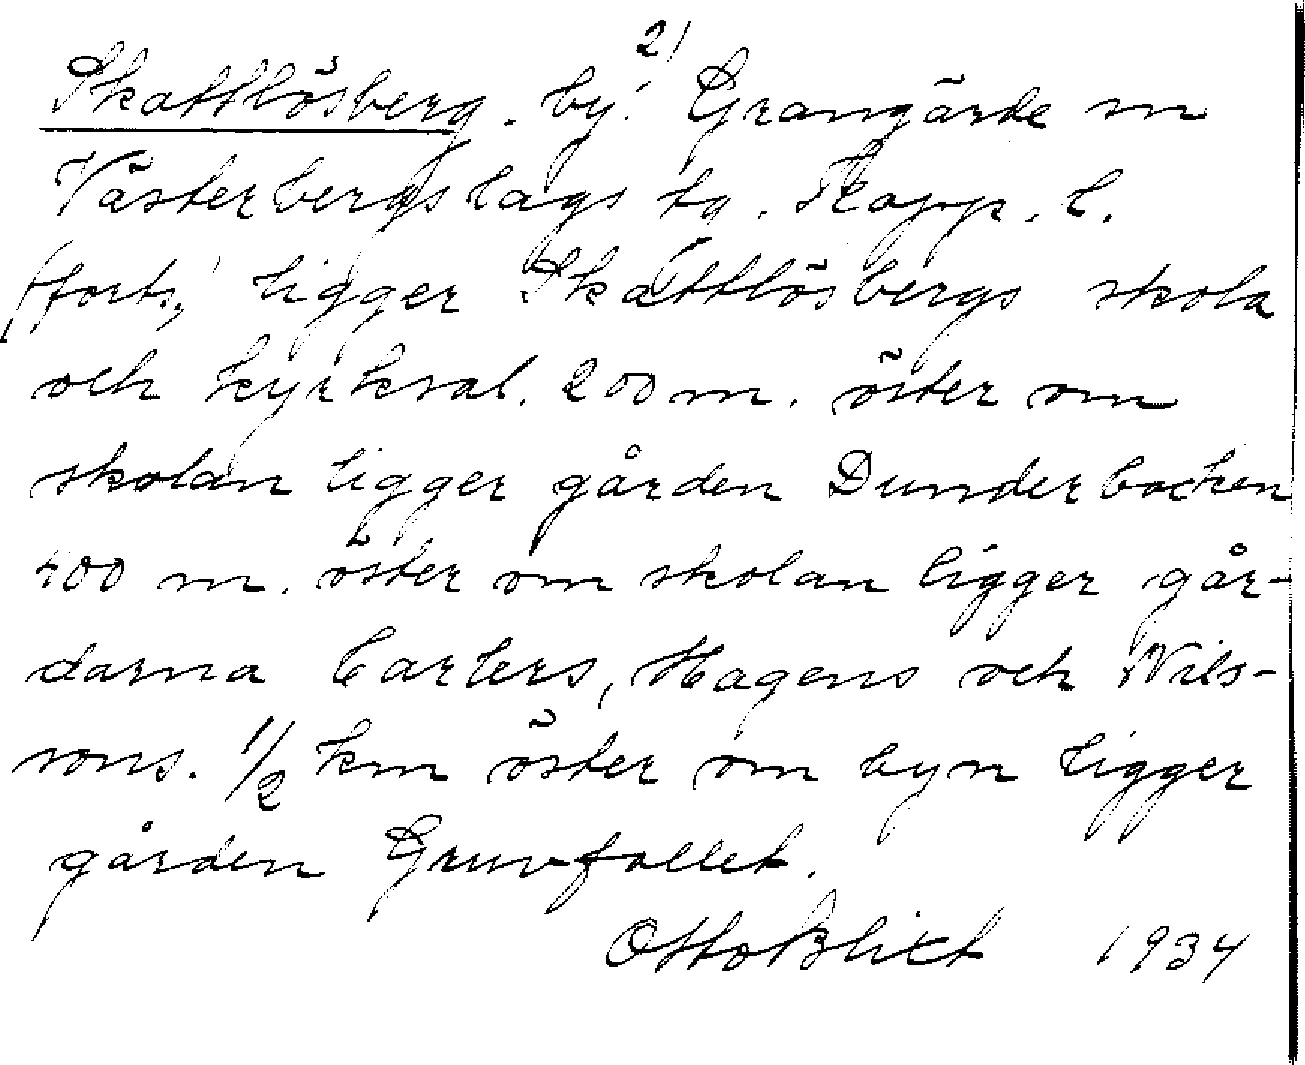 2)
Skattlösberg. by. Grangärde m
Västerbergslags tg. Kopp. l.
(forts.) ligger Skattlösbergs skola
och kyrksal. 200 m. öster om
skolan ligger gården Dunderbacken
400 m. öster om skolan ligger går-
darna Carlers, Hagens och Nils-
sons. 1/2 km öster om byn ligger
gården Gruvfallet.
Otto Blixt 1934